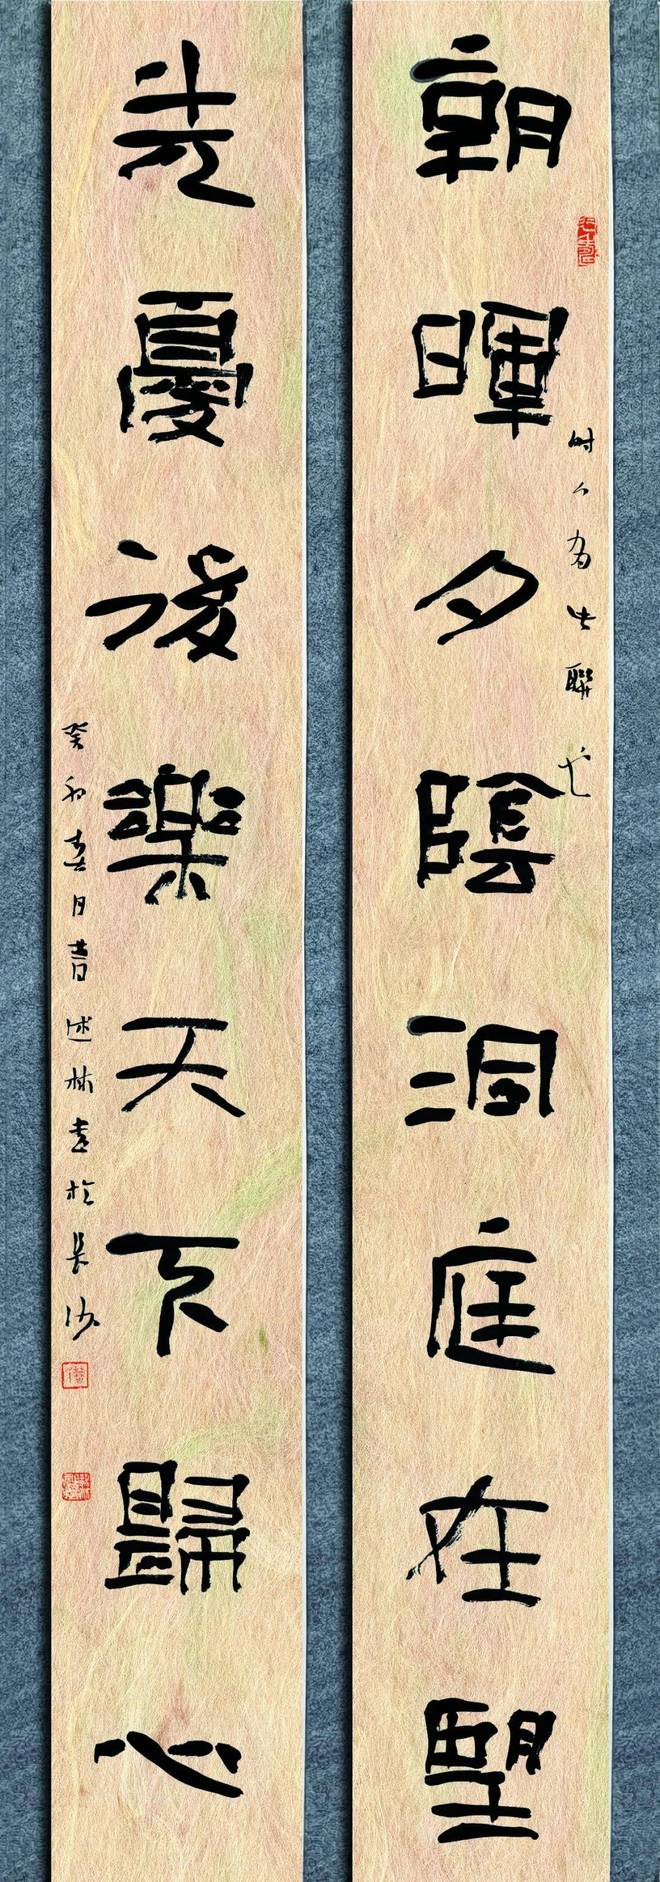 朝暉夕陰洞庭在望
時人為此聯也
先憂後樂天下歸心
癸卯春月曹述林書於長沙